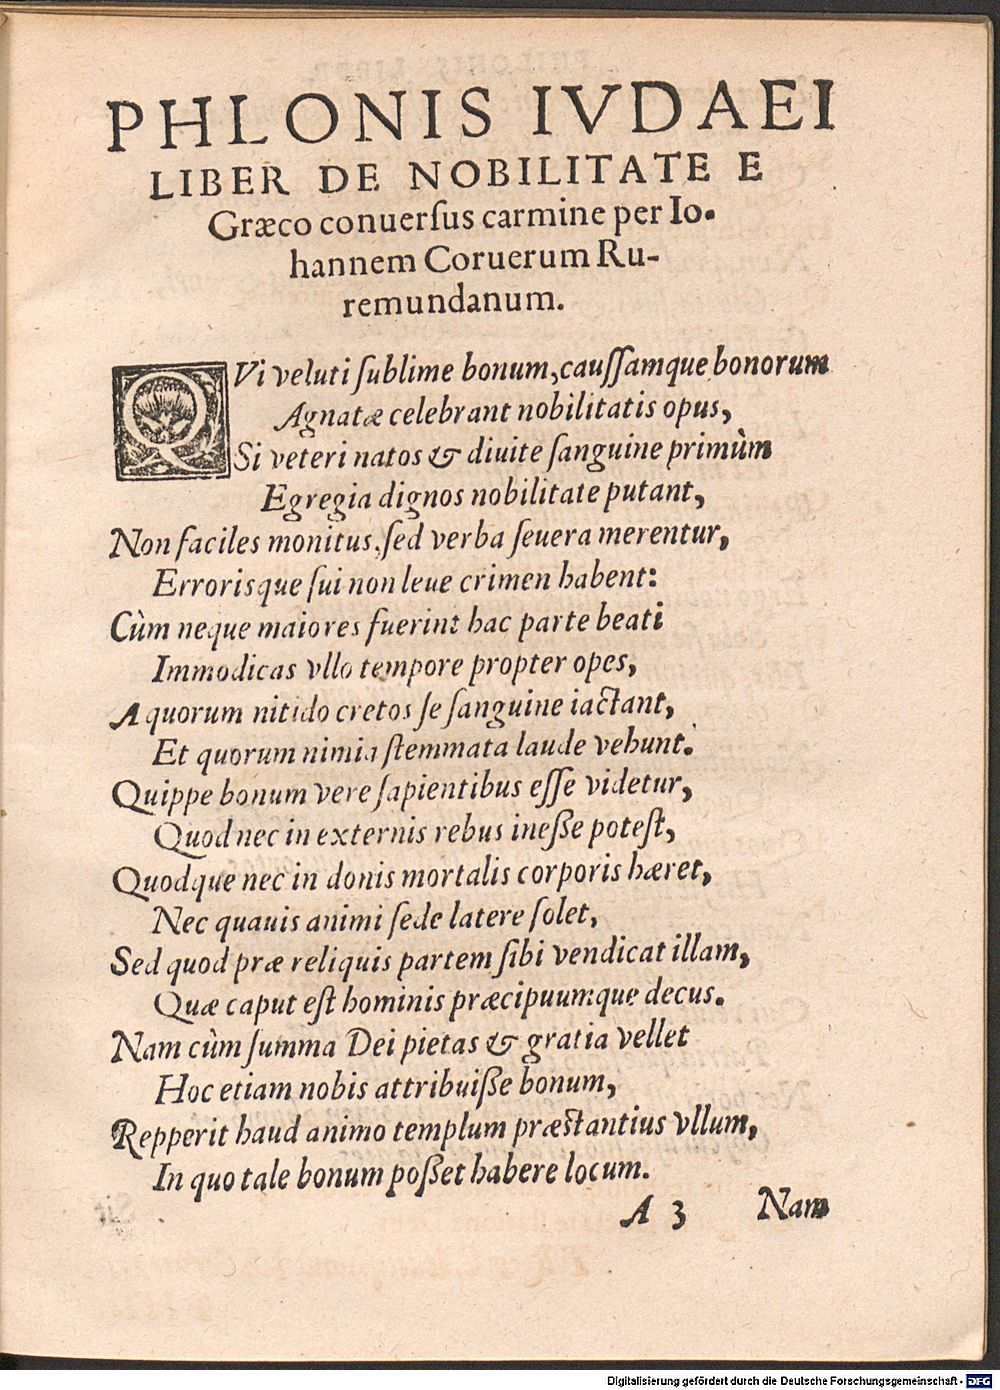 PHLONIS IVDAEI
LIBER DE NOBILITATE E
Græco conuerſus carmine per Io-
hannem Coruerum Ru-
remundanum.
QVi veluti ſublime bonum, cauſſamque bonorum
Agnatæ celebrant nobilitatis opus,
Si veteri natos & diuite ſanguine primùm
Egregia dignos nobilitate putant,
Non faciles monitus, ſed verba ſeuera merentur,
Errorisque ſui non leue crimen habent:
Cùm neque maiores fuerint hac parte beati
Immodicas vllo tempore propter opes,
A quorum nitido cretos ſe ſanguine iactant,
Et quorum nimia ſtemmata laude vehunt.
Quippe bonum vere ſapientibus eſſe videtur,
Quod nec in externis rebus ineſſe poteſt,
Quodque nec in donis mortalis corporis hæret,
Nec quauis animi ſede latere ſolet,
Sed quod præ reliquis partem ſibi vendicat illam,
Quæ caput eſt hominis præcipuumque decus.
Nam cùm ſumma Dei pietas & gratia vellet
Hoc etiam nobis attribuiſſe bonum,
Repperit haud animo templum præstantius vllum,
In quo tale bonum poſſet habere locum.
A 3 Nam
Digitalisierung gefördert durch die Deutsche Forschungsgemeinschaft - DFG